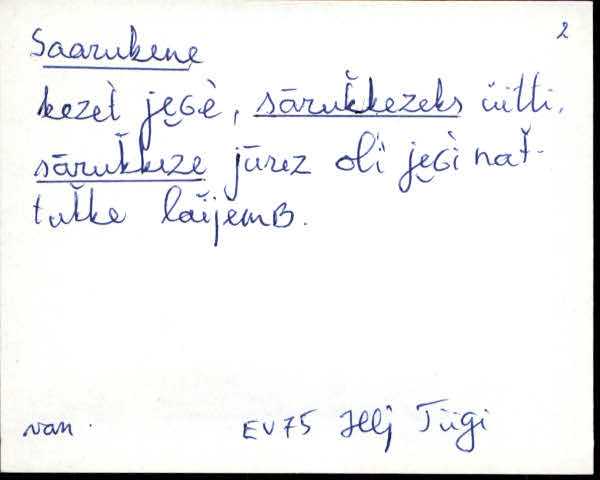 2
Saarukene
kezet̀ jɛ̮Gè, sāruk̆kezeks üitti.
sāruk̆keze jūrez oĺi jɛ̮Gì nat̆-
tuk̆ke laĭjemB.
van.
EV75 Helj Tiigi